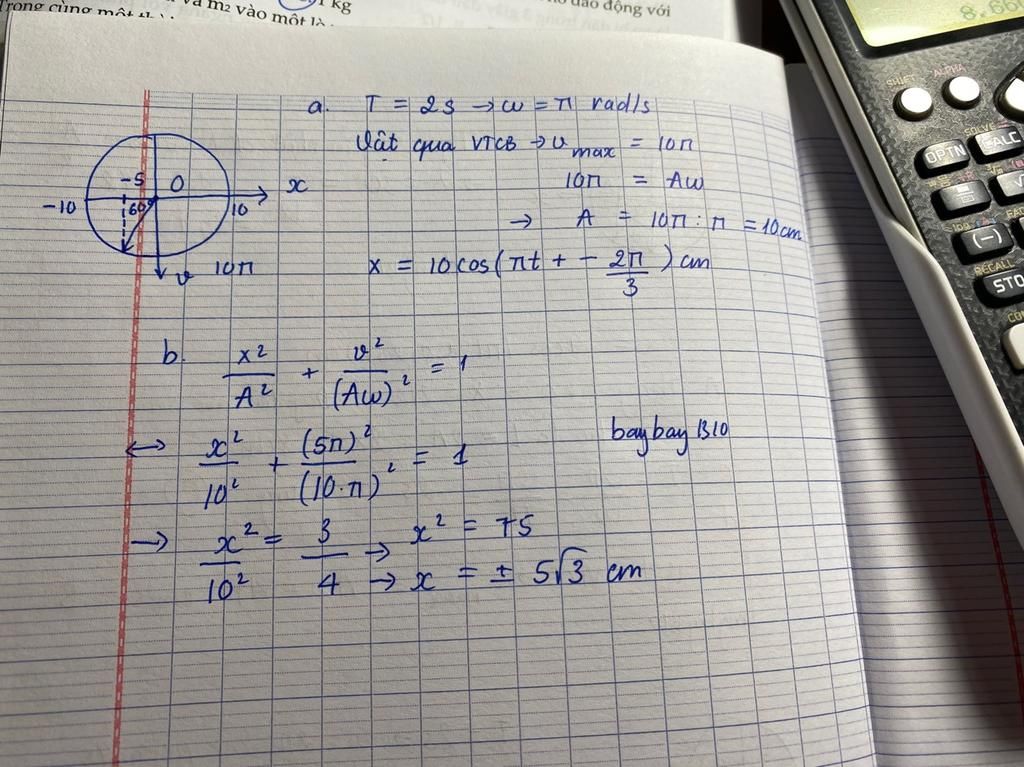 Trong cùng một
và m₂ vào một là
kg
dao động với
8.660
SHIFT
ALPHA
OPTN
CALC
(−)
RECALL
STO
a. T = 2s → ω = π rad/s
Vật qua VTCB → v max = 10π
10π = Aω
→ A = 10π : π = 10cm
x = 10cos(πt + - 2π/3) cm
-5 O x
-10 60° 10
v 10π
b. x²/A² + v²/(Aω)² = 1
↔ x²/10² + (5π)²/(10.π)² = 1
baybay1310
→ x²/10² = 3/4 → x² = 75
→ x = ± 5√3 cm